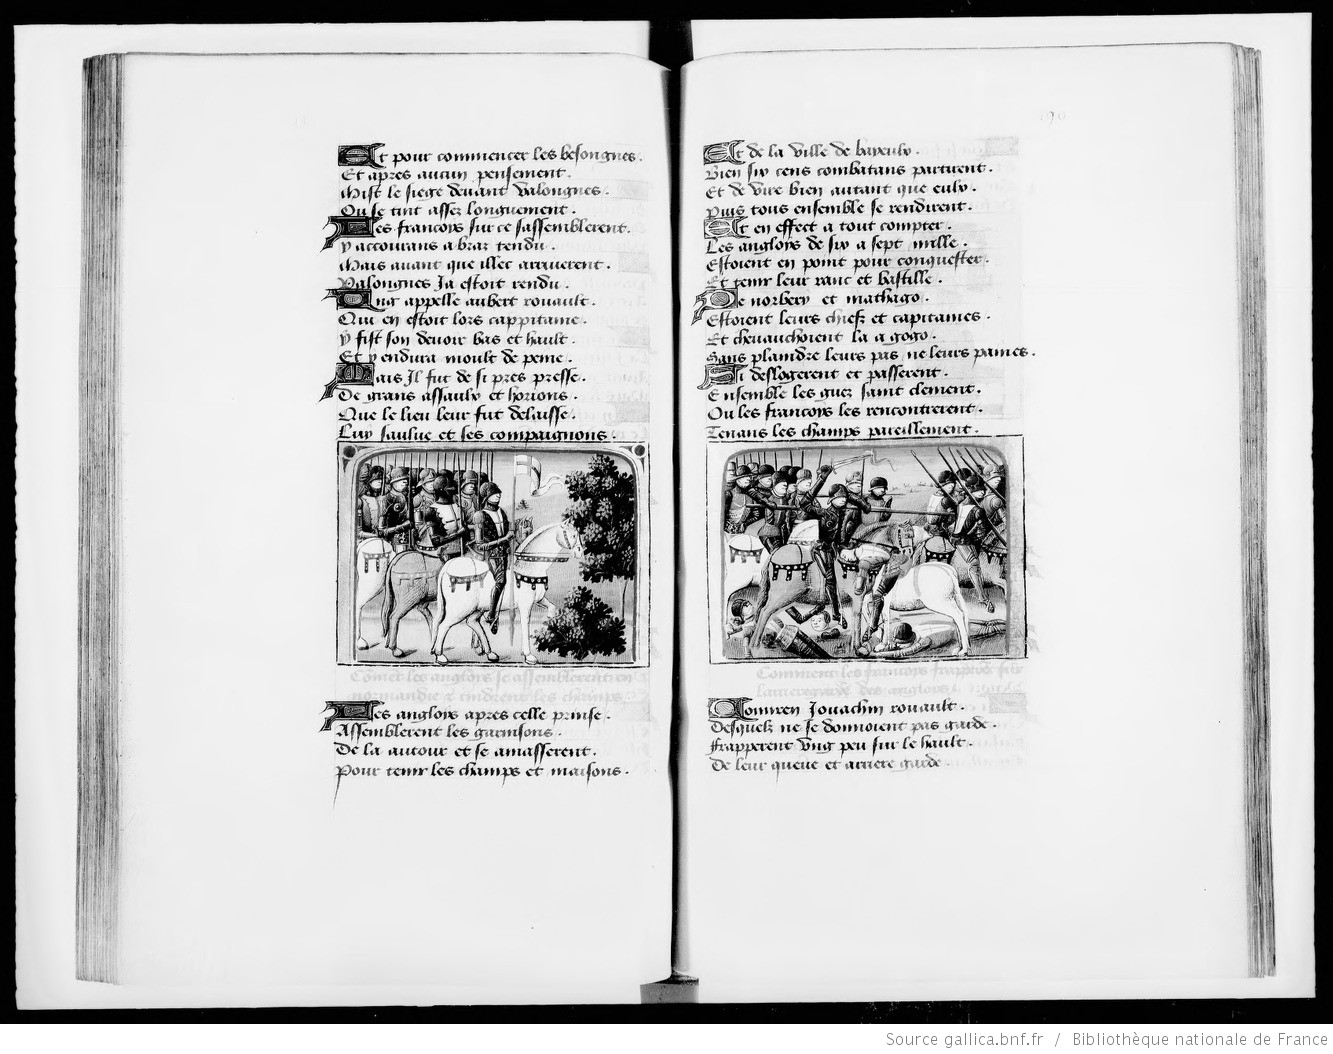 Et pour commencer les besongnes.
Et apres aucun pensement.
Mist le siege devant Valongnes.
Ou se tint assez longuement.
Les francoys sur ce sassemblerent.
y accourans a braz tendu.
Mais avant que illec arriverent.
Valongnes Ja estoit rendu.
Ung appelle aubert rouault.
Qui en estoit lors cappitaine.
y fist son devoir bas et hault.
Et y endura moult de peine.
Mais Jl fut de si pres presse.
De grans assaulx et horions.
Que le lieu leur fut delaisse.
Luy saulve et ses compaignons.
Comēt les anglois se assemblerent en
normandie & tindrent les champs
Les anglois apres celle prinse.
Assemblerent les garnisons.
De la autour et se amasserent.
Pour tenir les champs et maisons.
Et de la Ville de bayeulx.
Bien six cens combatans partirent.
Et de Vire bien autant que eulx.
Puis tous ensemble se rendirent.
Et en effect a tout compter.
Les anglois de six a sept mille.
Estoient en point pour conquester.
Et tenir leur ranc et bastille.
De norbery et mathago.
Estoient leurs chiefz et capitaines.
Et chevauchoient la a gogo.
Sans plaindre leurs pas ne leurs paines.
Si deslogerent et passerent.
Ensemble les guez saint clement.
Ou les francoys les rencontrerent.
Tenans les champs pareillement.
Comment les francoys frapperent sur
larriere garde des anglois
Jouachin rouault.
Desquelz ne se donnoient pas garde.
Frapperent Ung peu sur le hault.
De leur queue et arriere garde.
Source gallica.bnf.fr / Bibliothèque nationale de France